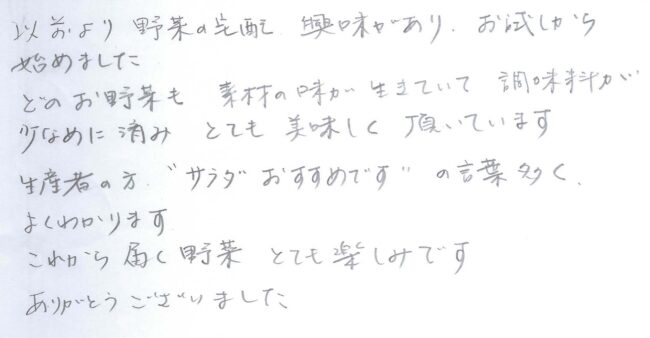 以前より 野菜の宅配に 興味があり、お試しから
始めました
どのお野菜も 素材の味が生きていて 調味料が
少なめに済み とても美味しく頂いています
生産者の方 "サラダおすすめです" の言葉多く、
よくわかります
これから届く野菜 とても楽しみです
ありがとうございました